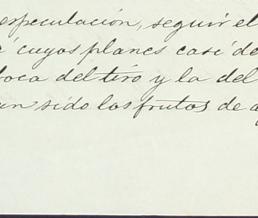 especulación, seguir el
cuyos planes casi de
boca del tiro y la del
sido los frutos de